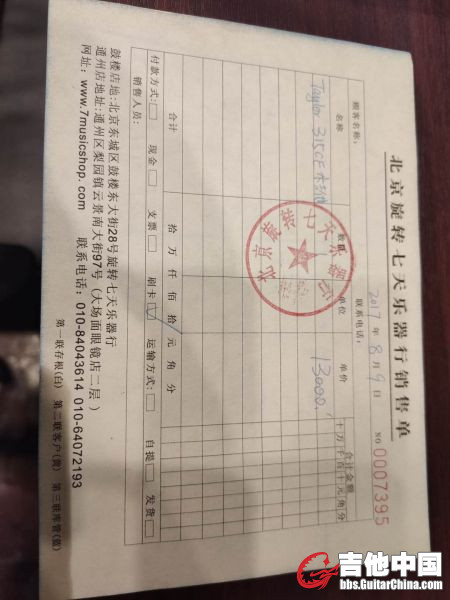 北京旋转七天乐器行销售单
2017年8月9日 NO 0007395
顾客名称: 联系电话:
名称 数量 单位 单价 合计金额
十万千百十元角分
Taylor 315CE 木吉他 13000.
合计 拾 万 仟 佰 拾 元 角 分
付款方式: 现金 支票 刷卡 运输方式: 自提 发货
销售人员:
鼓楼店地:北京东城区鼓楼东大街28号旋转七天乐器行
通州店地址:通州区梨园镇云景南大街97号(大场面眼镜店二层)
网址:www.7musicshop.com 联系电话:010-84043614 010-64072193
第一联存根(白) 第二联客户(黄) 第三联库管(蓝)
北京旋转七天乐器
吉他中国
bbs.GuitarChina.com